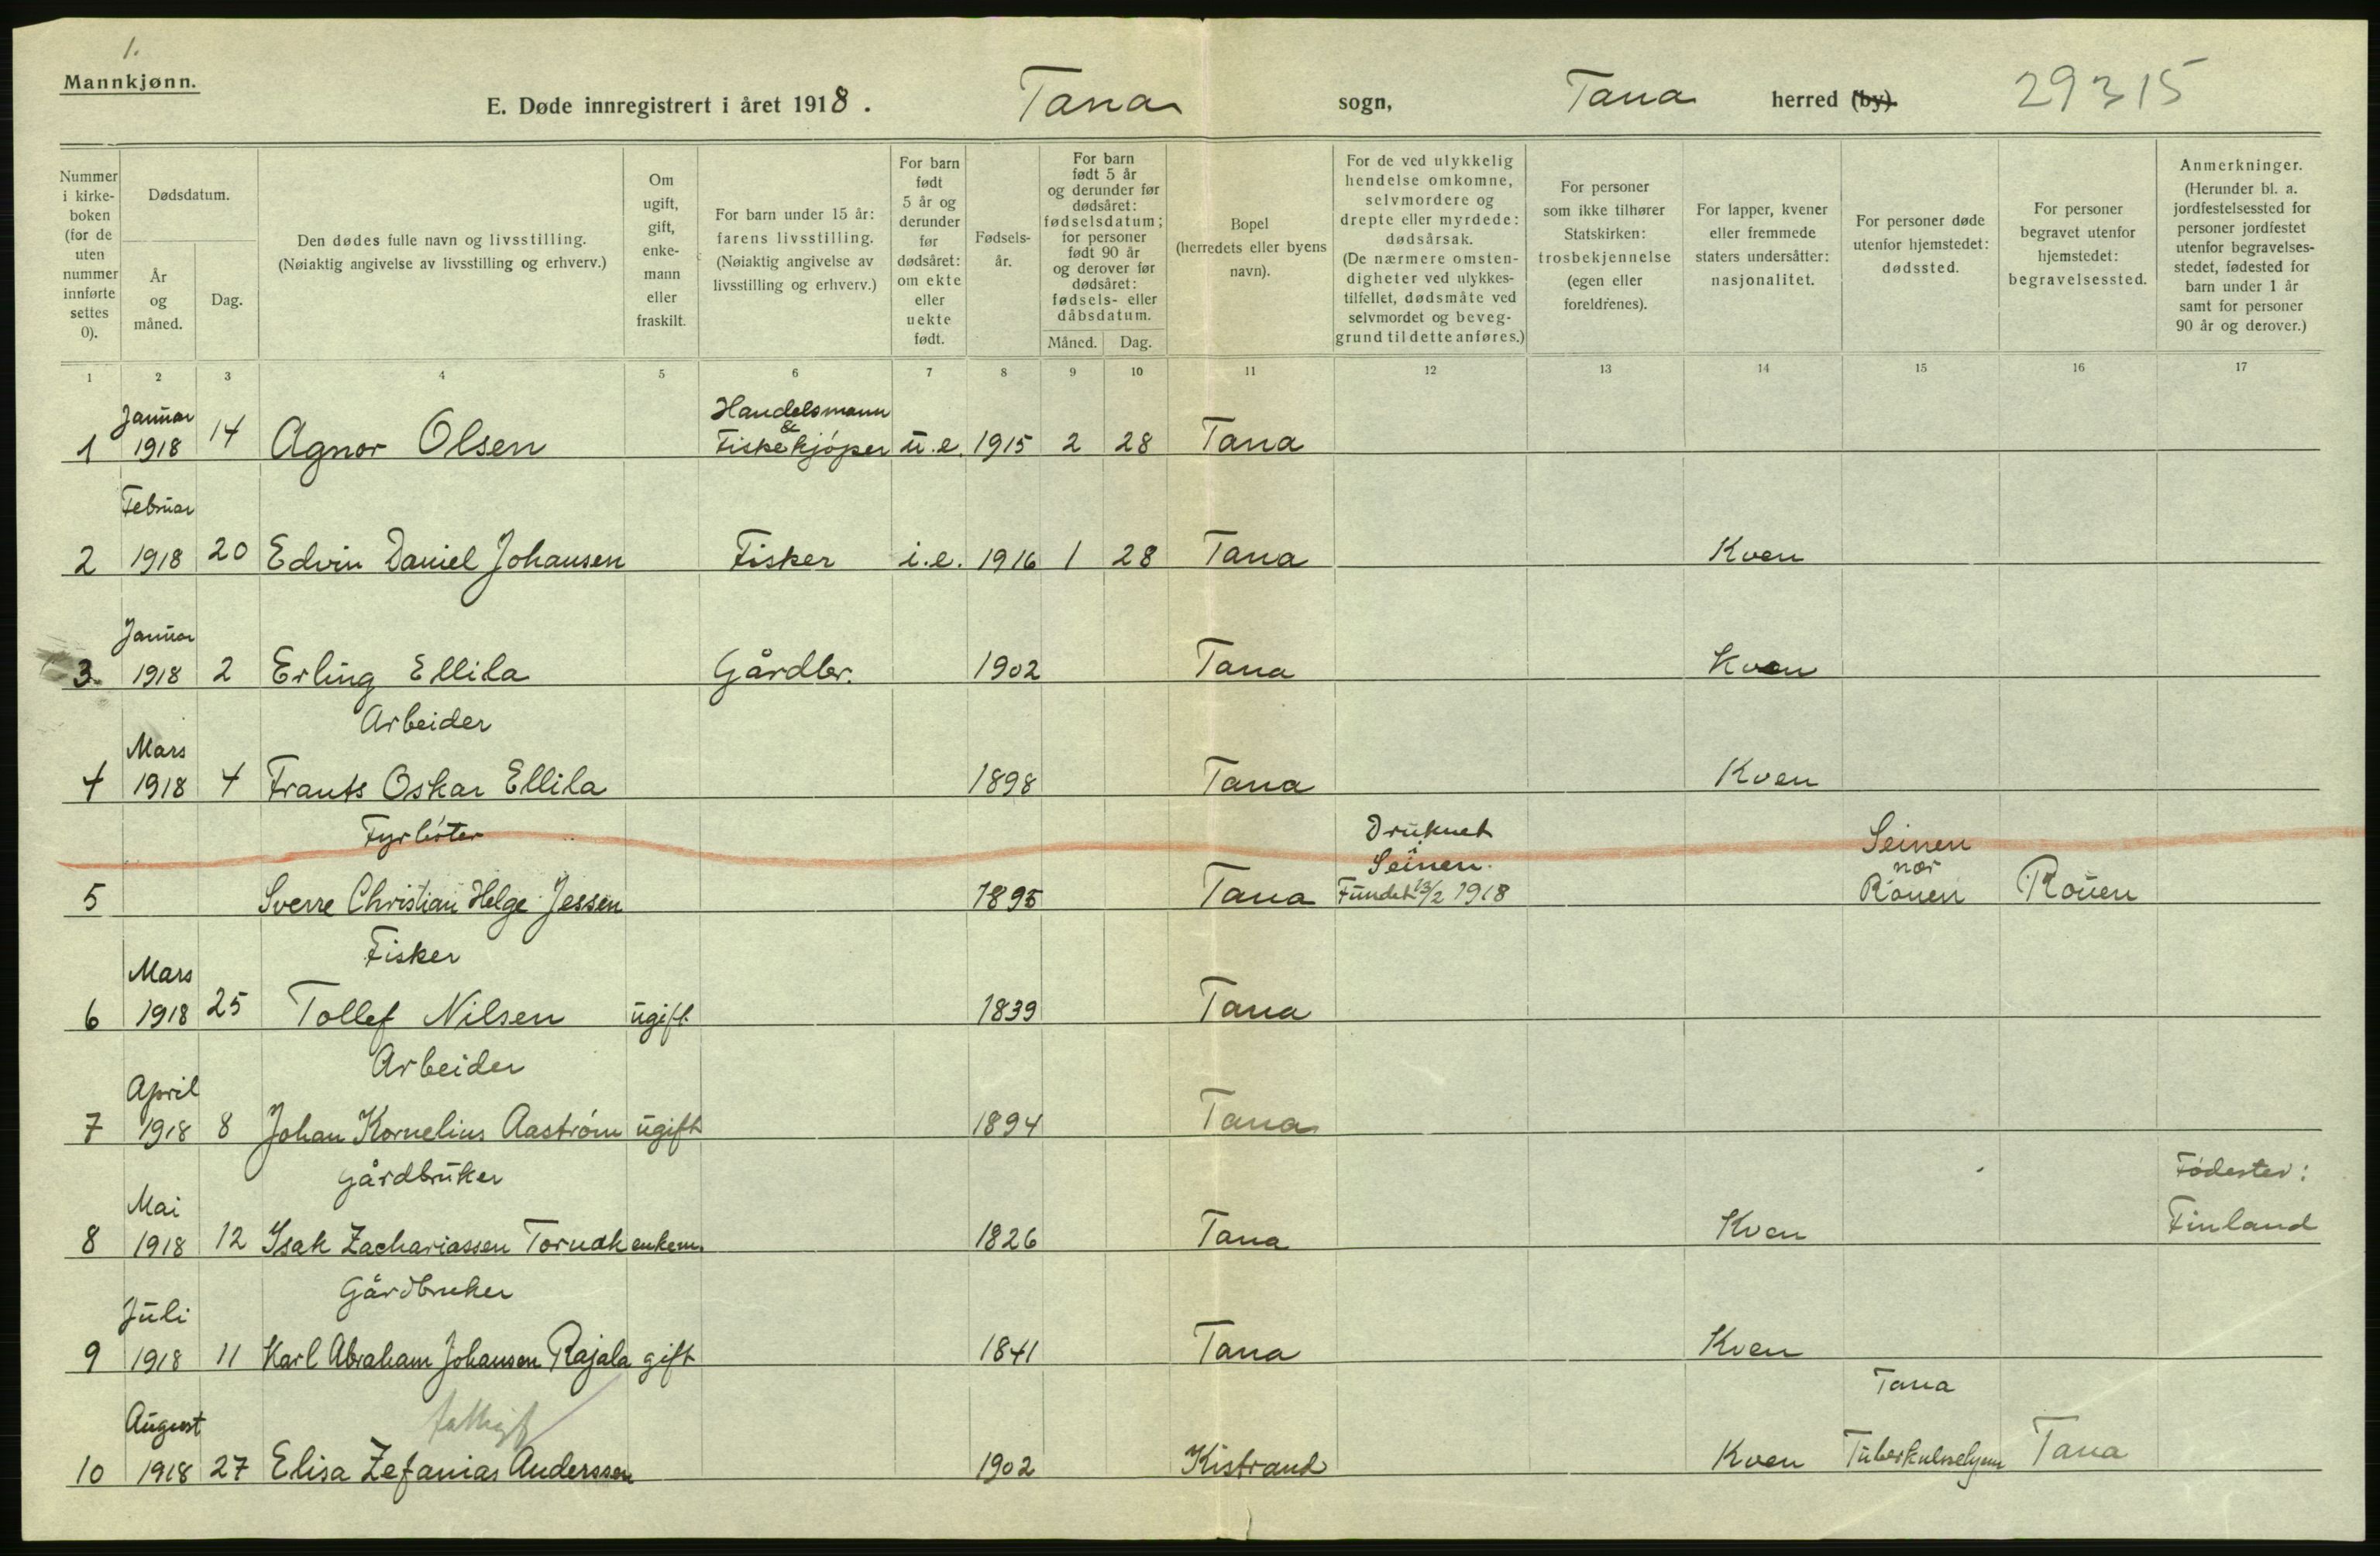 1.
Mannkjønn.
E. Døde innregistrert i året 1918. Tana sogn, Tana herred (by). 29315
Nummer i kirke- boken (for de uten nummer innførte settes 0).
Dødsdatum.
År og måned.
Dag.
Den dødes fulle navn og livsstilling. (Nøiaktig angivelse av livsstilling og erhverv.)
Om ugift, gift, enke- mann eller fraskilt.
For barn under 15 år: farens livsstilling. (Nøiaktig angivelse av livsstilling og erhverv.)
For barn født 5 år og derunder før dødsåret: om ekte eller uekte født.
Fødsels- år.
For barn født 5 år og derunder før dødsåret: fødselsdatum; for personer født 90 år og derover før dødsåret: fødsels- eller dåbsdatum.
Måned. Dag.
Bopel (herredets eller byens navn).
For de ved ulykkelig hendelse omkomne, selvmordere og drepte eller myrdede: dødsårsak. (De nærmere omsten- digheter ved ulykkes- tilfellet, dødsmåte ved selvmordet og beveg- grund til dette anføres.)
For personer som ikke tilhører Statskirken: trosbekjennelse (egen eller foreldrenes).
For lapper, kvener eller fremmede staters undersåtter: nasjonalitet.
For personer døde utenfor hjemstedet: dødssted.
For personer begravet utenfor hjemstedet: begravelsessted.
Anmerkninger. (Herunder bl. a. jordfestelsessted for personer jordfestet utenfor begravelses- stedet, fødested for barn under 1 år samt for personer 90 år og derover.)
1 2 3 4 5 6 7 8 9 10 11 12 13 14 15 16 17
Januar Handelsmann
&
1 1918 14 Agnor Olsen Fiskekjøper u.e. 1915 2 28 Tana
Februar
2 1918 20 Edvin Daniel Johansen Fisker i.e. 1916 1 28 Tana Kven
Januar
3 1918 2 Erling Ellila Gårdbr. 1902 Tana Kven
Arbeider
Mars
4 1918 4 Frants Oskar Ellila 1898 Tana Kven
Fyrbøter Druknet Seinen
i Seinen. nær
5 Sverre Christian Helge Jessen 1895 Tana Fundet 13/2 1918 Rouen Rouen
Fisker
Mars
6 1918 25 Tollef Nilsen ugift 1839 Tana
Arbeider
April
7 1918 8 Johan Kornelius Aastrøm ugift 1894 Tana
Gårdbruker Fødested:
Mai
8 1918 12 Isak Zachariassen Tornok enkem. 1826 Tana Kven Finland
Gårdbruker
Juli
9 1918 11 Karl Abraham Johansen Rajala gift 1841 Tana Kven
Tana
August fattigf
10 1918 27 Elisa Zefanias Anderssen 1902 Kistrand Kven Tuberkulosehjem Tana